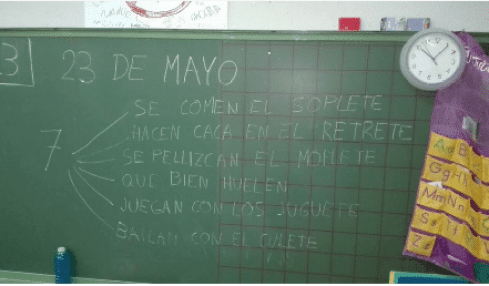 3
23 DE MAYO
7
SE COMEN EL SOPLETE
HACEN CACA EN EL RETRETE
SE PELLIZCAN EL MOFLETE
QUE BIEN HUELEN
JUEGAN CON LOS JUGUETE
BAILAN CON EL CULETE
Aa B
Gg H
Mm Nn
S
Zz